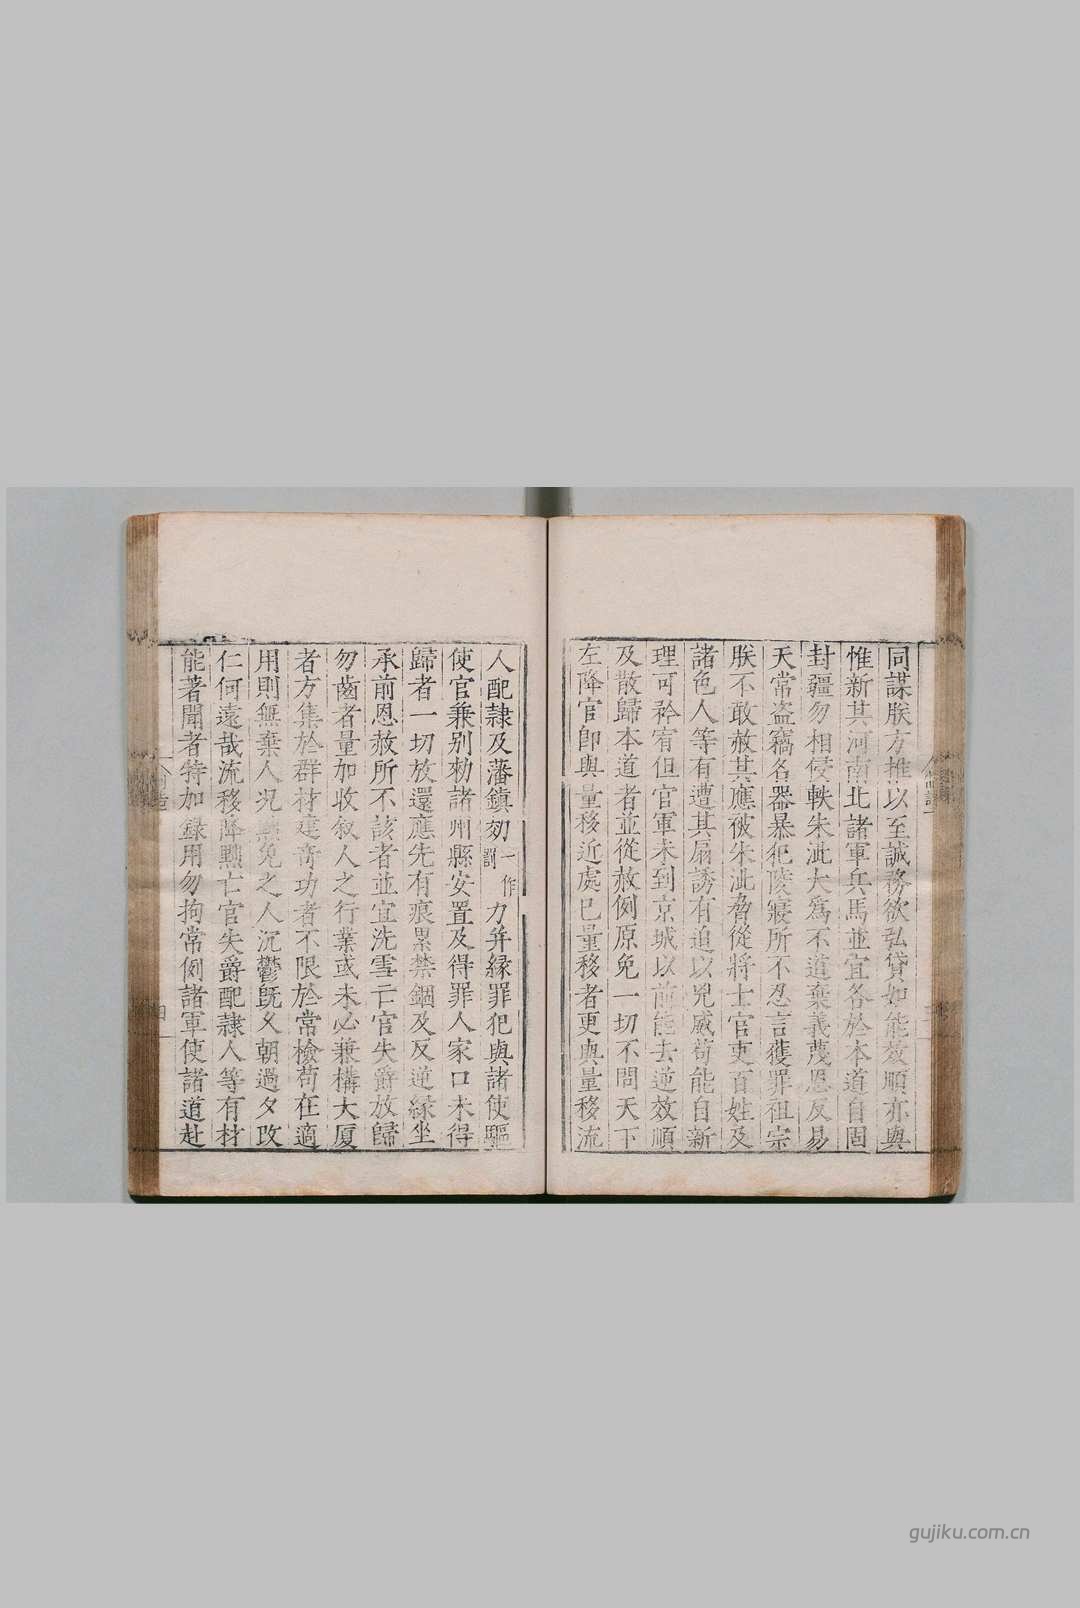 同謀朕方推以至誠務欲弘貸如能效順亦與
惟新其河南北諸軍兵馬並宜各於本道自固
封疆勿相侵軼朱泚大爲不道棄義蔑恩反易
天常盜竊名器暴犯陵寢所不忍言獲罪祖宗
朕不敢赦其應被朱泚脅從將士官吏百姓及
諸色人等有遭其扇誘有迫以兇威苟能自新
理可矜宥但官軍未到京城以前能去逆效順
及散歸本道者並從赦例原免一切不問天下
左降官卽與量移近處已量移者更與量移流
人配隷及藩鎮効一作罰力并緣罪犯與諸使驅
使官兼别勑諸州縣安置及得罪人家口未得
歸者一切放還應先有痕累禁錮及反逆緣坐
承前恩赦所不該者並宜洗雪亡官失爵放歸
勿齒者量加收叙人之行業或未必兼構大厦
者方集於群材建奇功者不限於常檢苟在適
用則無棄人况黜免之人沉鬱旣久朝過夕改
仁何遠哉流移降黜亡官失爵配隷人等有材
能著聞者特加録用勿拘常例諸軍使諸道赴
四
gujiku.com.cn